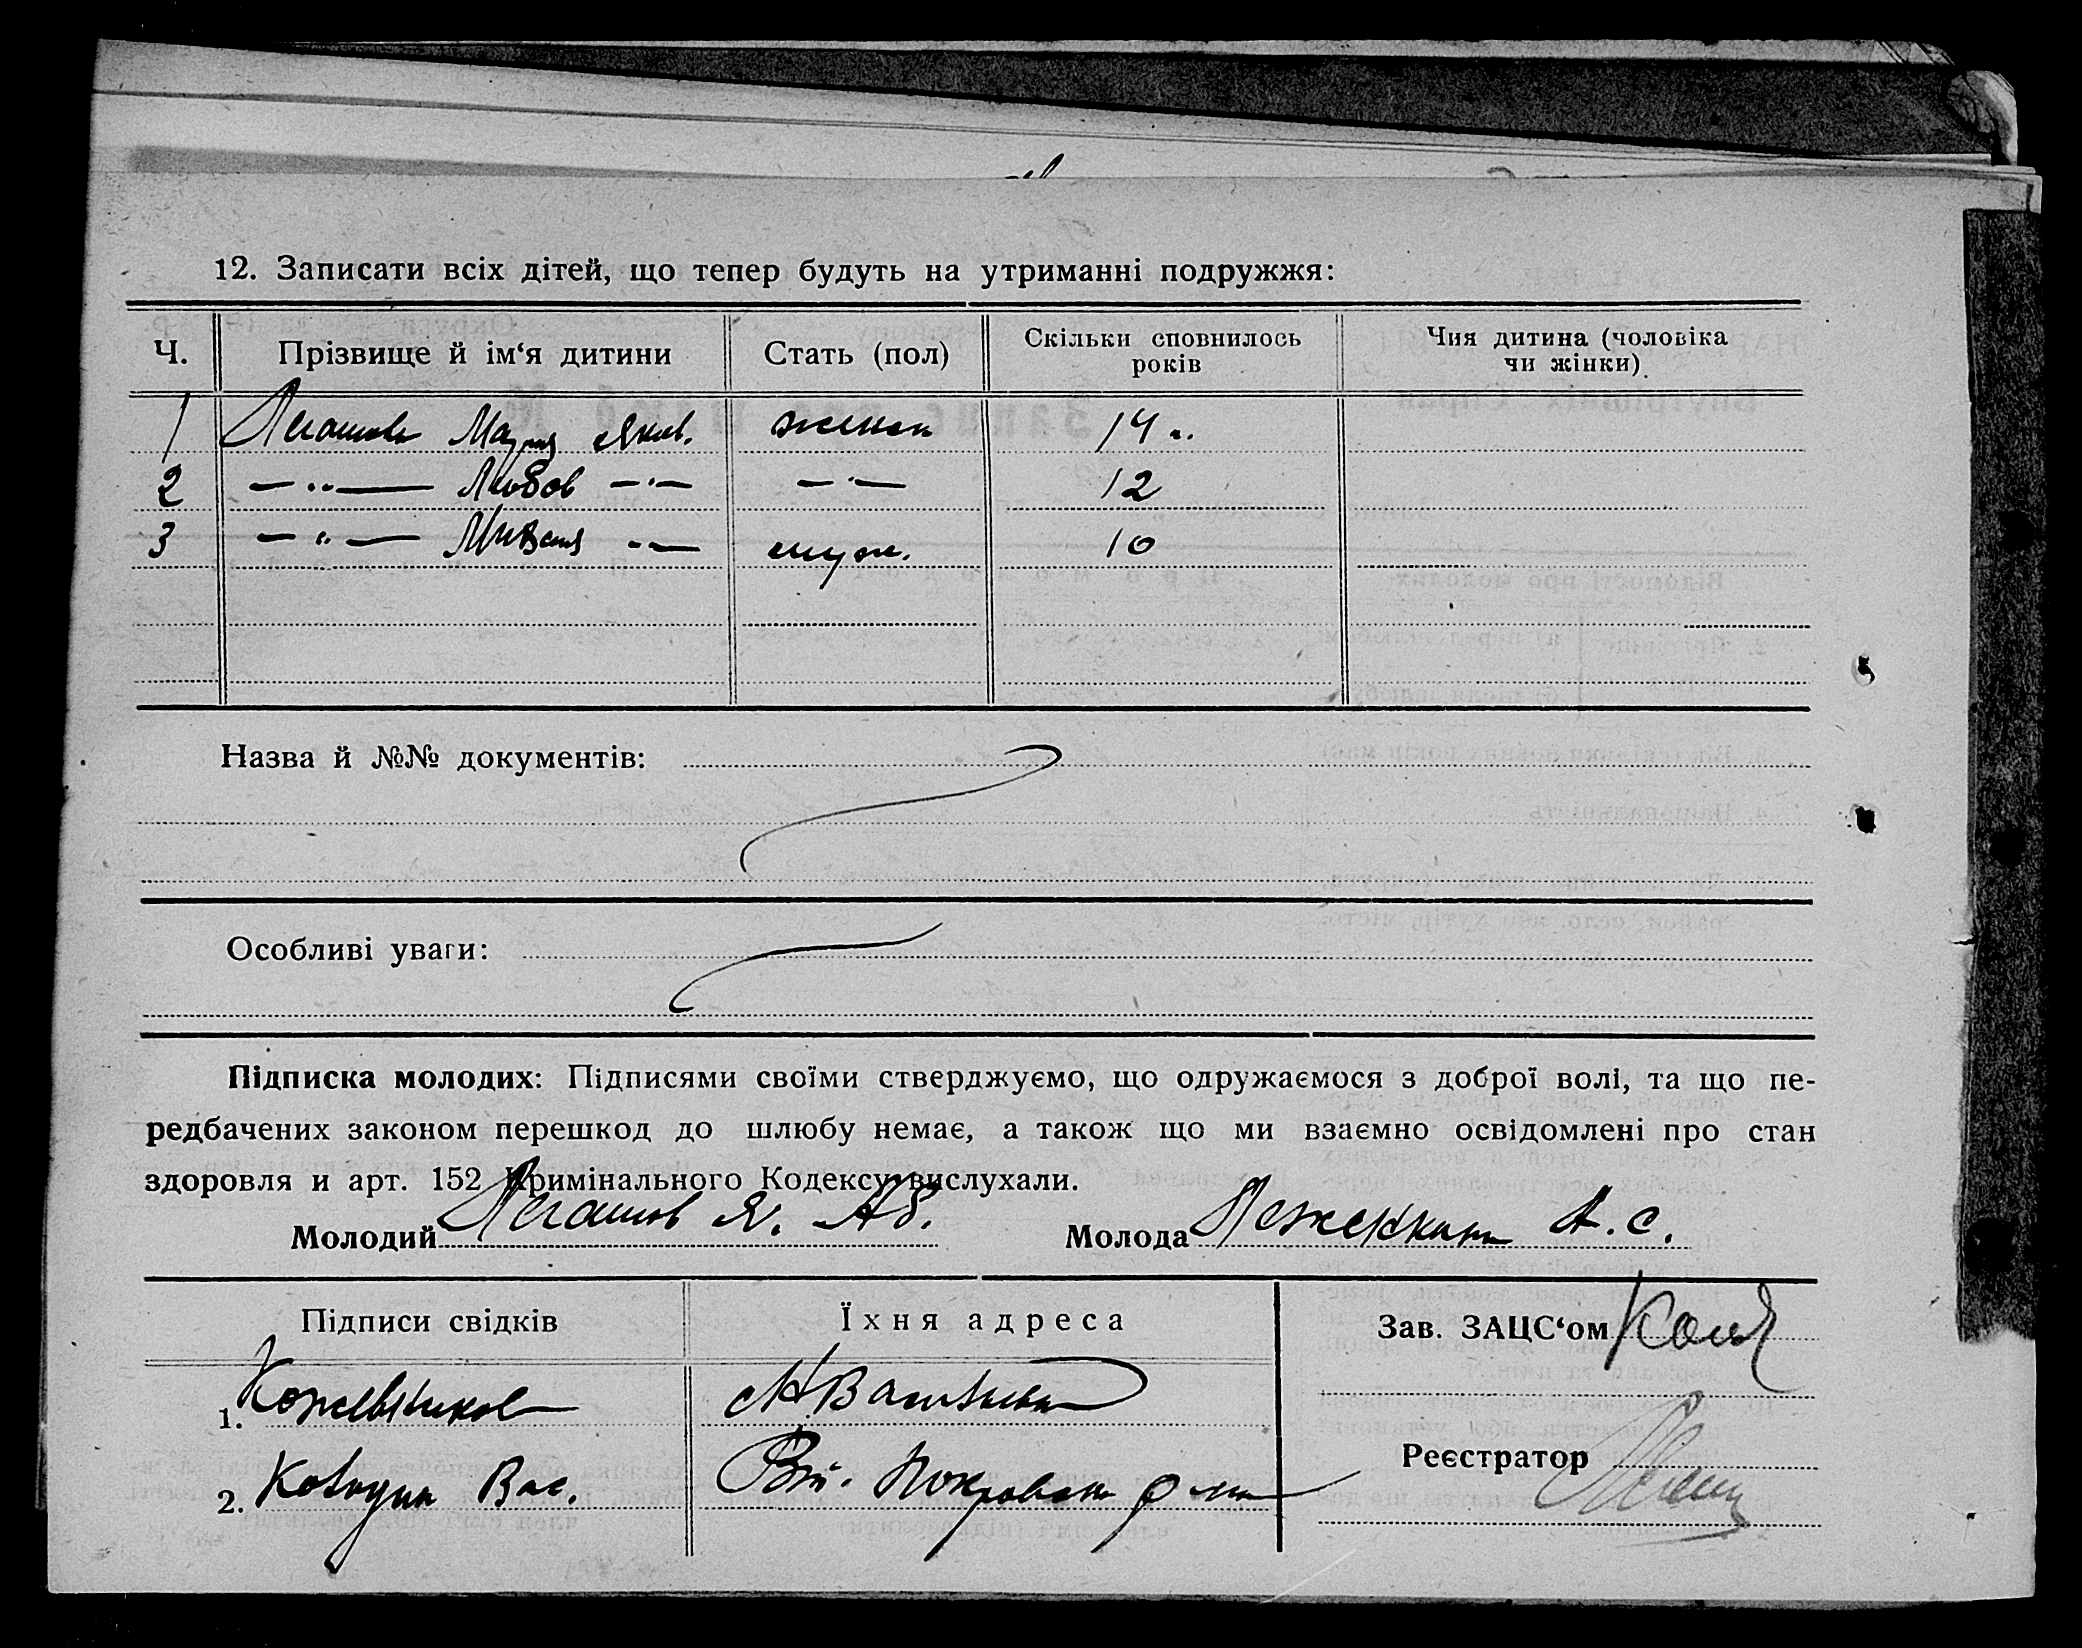 12. Записати всіх дітей, що тепер будуть на утриманні подружжя:
Ч. Прізвище й ім‘я дитини Стать (пол) Скільки сповнилось років Чия дитина (чоловіка чи жінки)
1 Мария Яков. женск 14
2 — „ — Любов — „ — — „ — 12
3 — „ — — „ — муж. 10
Назва й №№ документів:
Особливі уваги:
Підписка молодих: Підписями своїми стверджуємо, що одружаємося з доброї волі, та що пе-
редбачених законом перешкод до шлюбу немає, а також що ми взаємно освідомлені про стан
здоровля и арт. 152 Кримінального Кодексу вислухали.
Молодий Я. Молода А. С.
Підписи свідків Їхня адреса Зав. ЗАЦС‘ом
1. Кожевников
Реєстратор
2. Вас. Покровськ